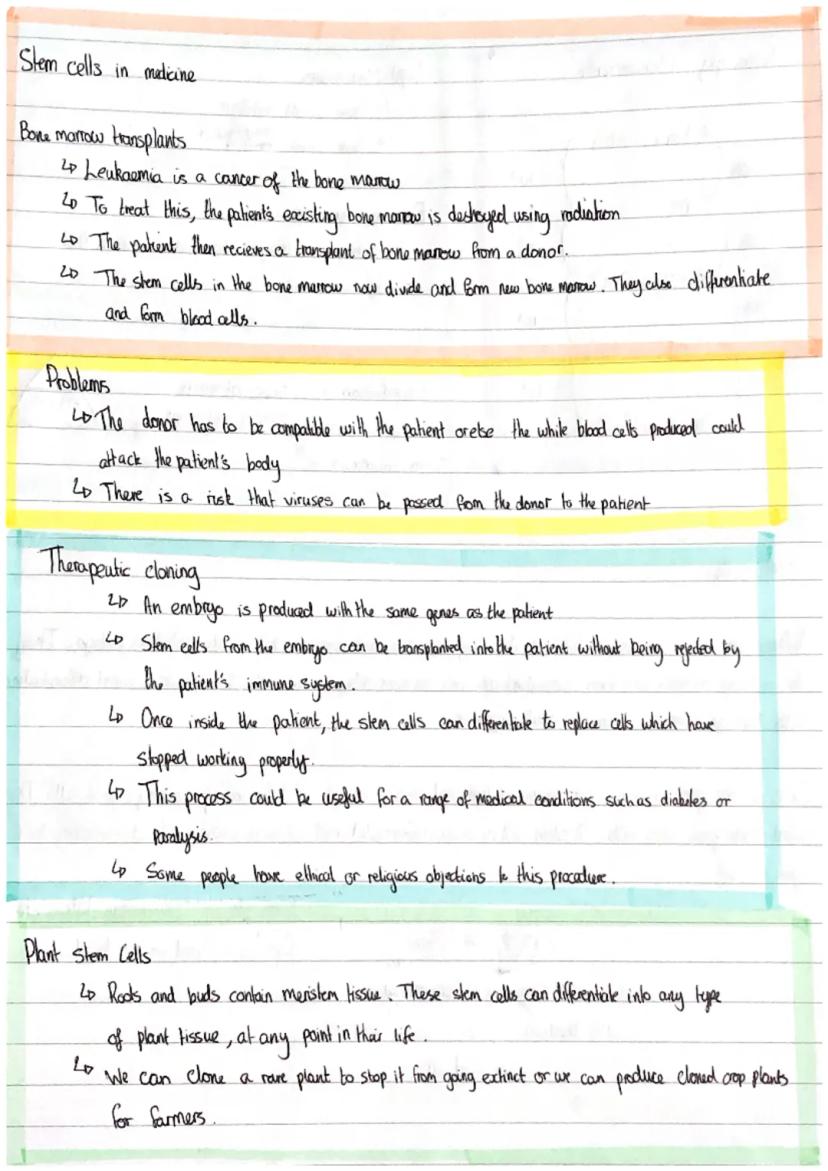 Stem cells in medicine
Bone marrow transplants
↳ Leukaemia is a cancer of the bone marrow
↳ To treat this, the patient's excisting bone marrow is destroyed using radiation
↳ The patient then recieves a transplant of bone marrow from a donor.
↳ The stem cells in the bone marrow now divide and form new bone marrow. They also differentiate
and form blood cells.
Problems
↳ The donor has to be compatible with the patient orelse the white blood cells produced could
attack the patient's body
↳ There is a risk that viruses can be passed from the donor to the patient
Therapeutic cloning
↳ An embryo is produced with the same genes as the patient
↳ Stem cells from the embryo can be transplanted into the patient without being rejected by
the patient's immune system.
↳ Once inside the patient, the stem cells can differentiate to replace cells which have
stopped working properly.
↳ This process could be useful for a range of medical conditions such as diabetes or
paralysis.
↳ Some people have ethical or religious objections to this procedure.
Plant stem Cells
↳ Roots and buds contain meristem tissue. These stem cells can differentiate into any type
of plant tissue, at any point in their life.
↳ We can clone a rare plant to stop it from going extinct or we can produce cloned crop plants
for farmers.